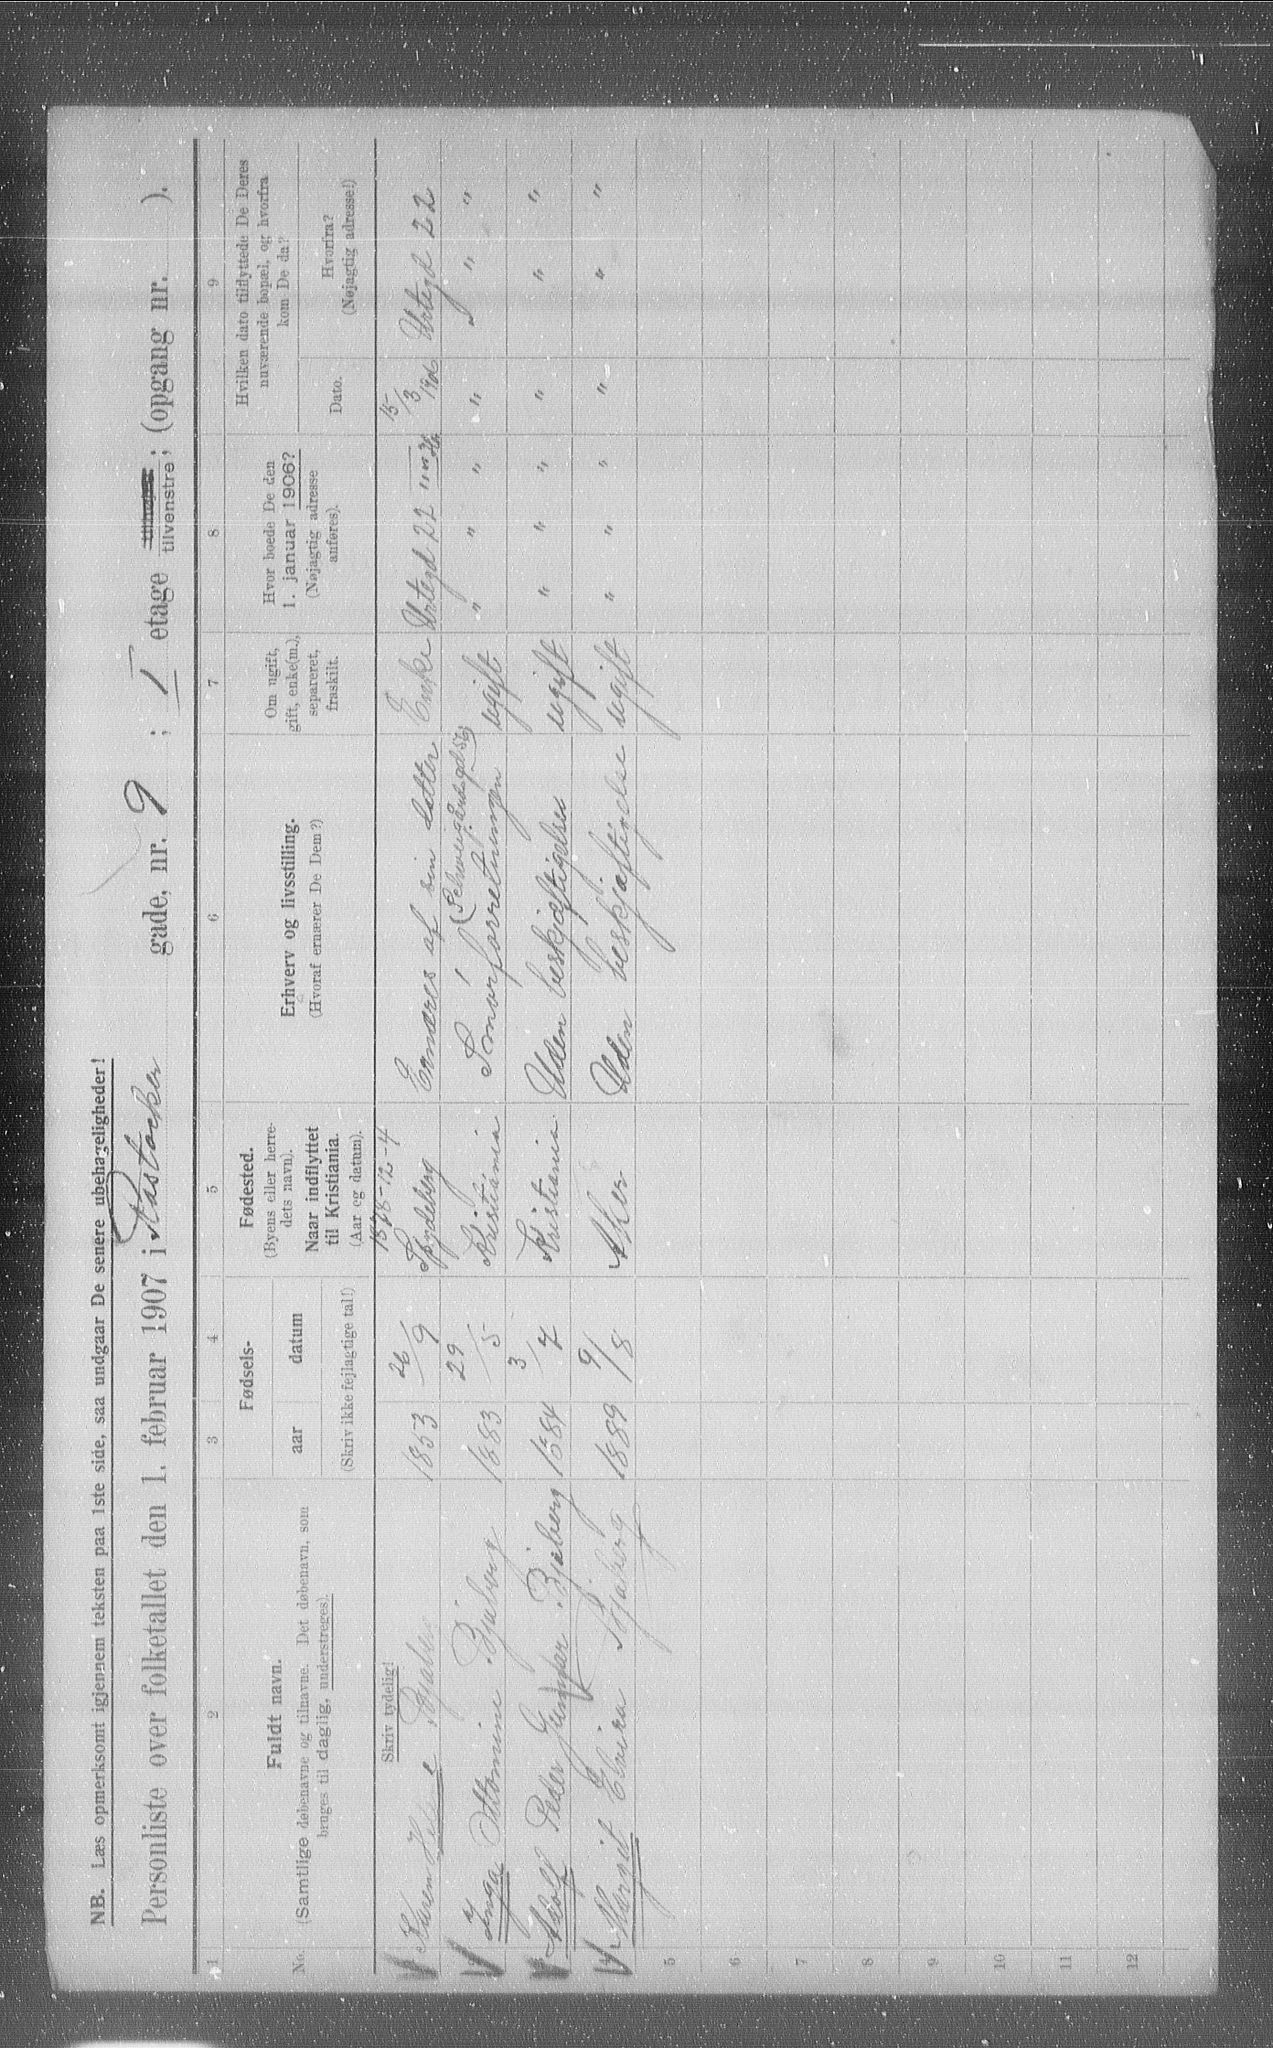 NB. Læs opmerksomt igjennem teksten paa 1ste side, saa undgaar De senere ubehageligheder!
Personliste over folketallet den 1. februar 1907 i Rastocker gade, nr. 9 ; I etage tilvenstre; (opgang nr. ).
1 2 3 4 5 6 7 8 9
No.
Fuldt navn.
(Samtlige døbenavne og tilnavne. Det døbenavn, som
bruges til daglig, understreges).
Fødsels-
aar datum
(Skriv ikke fejlagtige tal!)
Fødested.
(Byens eller herre-
dets navn).
Naar indflyttet
til Kristiania.
(Aar og datum).
Erhverv og livsstilling.
(Hvoraf ernærer De Dem?)
Om ugift,
gift, enke(m.),
separeret,
fraskilt.
Hvor boede De den
1. januar 1906?
(Nøjagtig adresse
anføres).
Hvilken dato tilflyttede De Deres
nuværende bopæl, og hvorfra
kom De da?
Dato.
Hvorfra?
(Nøjagtig adresse!)
Skriv tydelig!
Karen 1853 26/9 1878-12-4 Spydeberg Ernæres af sin datter Enke Urtegd 22 15/3 Urtegd 22
Inga Ottomine Bjaberg 1883 29/5 Kristiania Smørforretningen ugift " " " " " "
Adolf Peder Gunnar Bjaberg 1884 3/7 Kristiania Uden beskjæftigelse ugift " " " " " "
Margit Elvira Bjaberg 1889 9/8 Aker Uden beskjæftigelse ugift " " " " " "
5
6
7
8
9
10
11
12